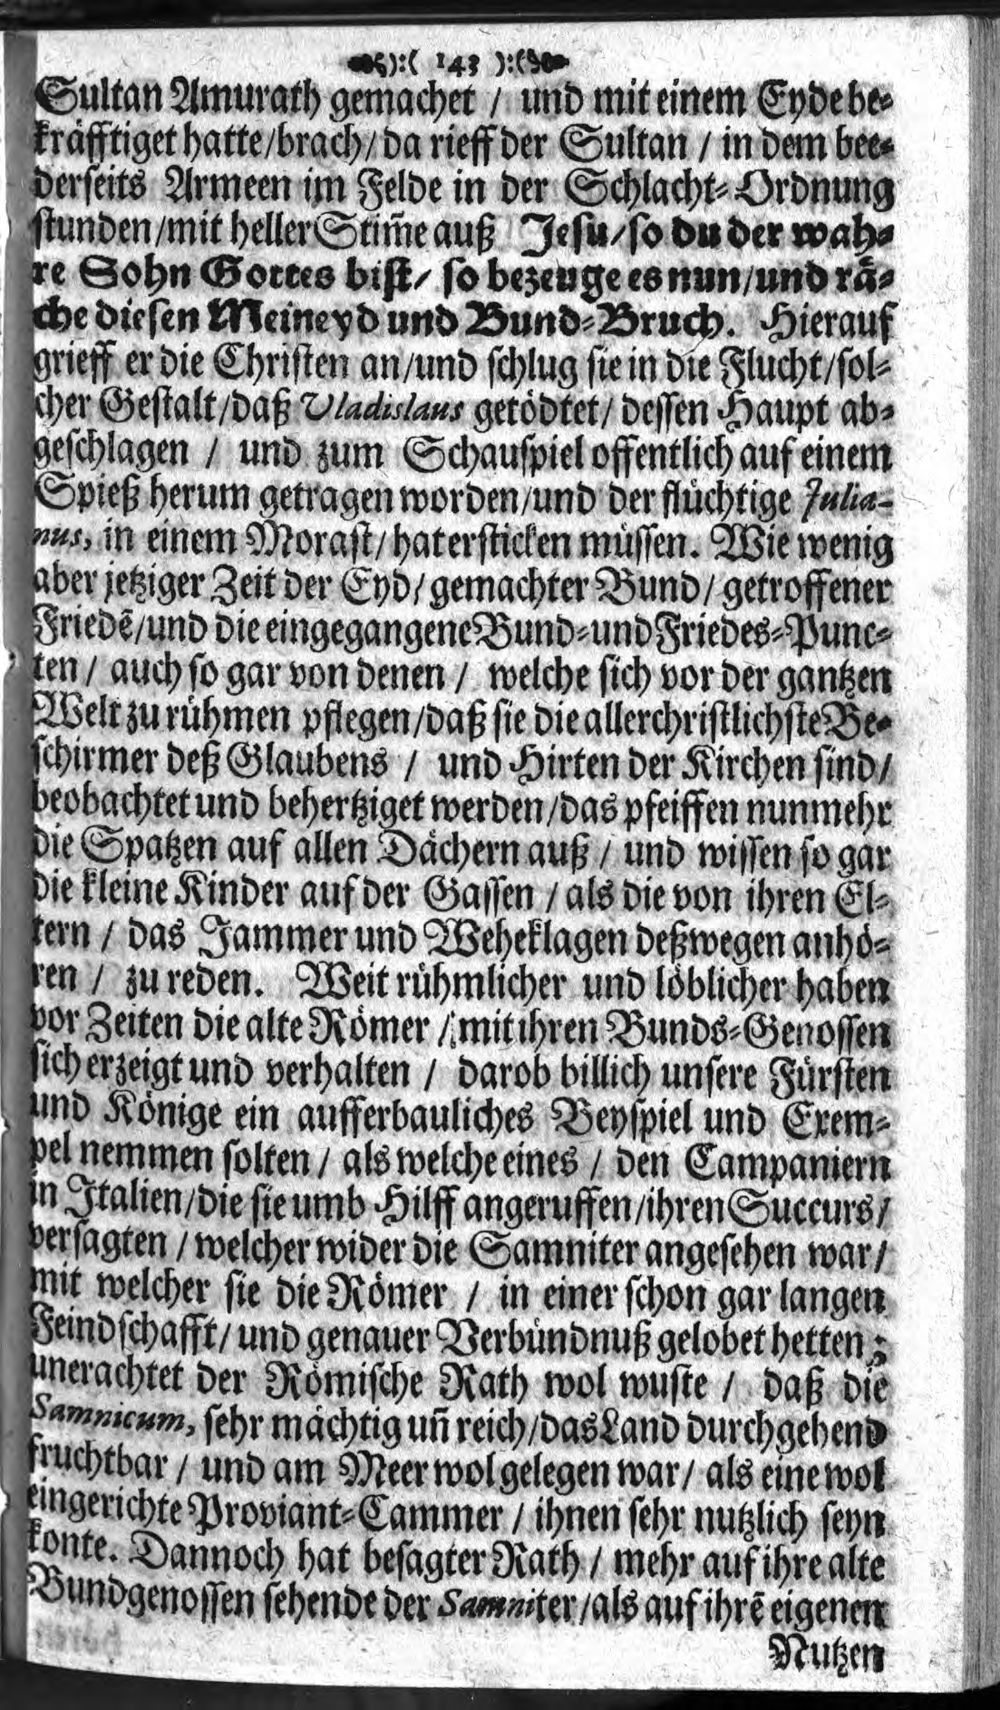 ):( 143 ):(
Sultan Amurath gemachet / und mit einem Eyde be-
kräfftiget hatte/brach/da rieff der Sultan / in dem bee-
derseits Armeen im Felde in der Schlacht-Ordnung
stunden/mit heller Stim̃e auß Jesu/so du der wah-
re Sohn Gottes bist/ so bezeuge es nun/und rä-
che diesen Meineyd und Bund-Bruch. Hierauf
grieff er die Christen an/und schlug sie in die Flucht/sol-
cher Gestalt/daß Vladislaus getödtet/ dessen Haupt ab-
geschlagen / und zum Schauspiel offentlich auf einem
Spieß herum getragen worden/und der flüchtige Julia-
nus, in einem Morast/hat ersticken müssen. Wie wenig
aber jetziger Zeit der Eyd/ gemachter Bund/ getroffener
Friedẽ/und die eingegangene Bund-und Friedes-Punc-
ten / auch so gar von denen / welche sich vor der gantzen
Welt zu rühmen pflegen/daß sie die allerchristlichste Be-
schirmer deß Glaubens / und Hirten der Kirchen sind/
beobachtet und behertziget werden/das pfeiffen nunmehr
die Spatzen auf allen Dächern auß / und wissen so gar
die kleine Kinder auf der Gassen / als die von ihren El-
tern / das Jammer und Weheklagen deßwegen anhö-
ren / zu reden. Weit rühmlicher und löblicher haben
vor Zeiten die alte Römer / mit ihren Bunds-Genossen
sich erzeigt und verhalten / darob billich unsere Fürsten
und Könige ein aufferbauliches Beyspiel und Exem-
pel nemmen solten / als welche eines / den Campaniern
in Italien/die sie umb Hilff angeruffen/ihren Succurs/
versagten / welcher wider die Samniter angesehen war/
mit welcher sie die Römer / in einer schon gar langen
Feindschafft/ und genauer Verbündnuß gelobet hetten;
unerachtet der Römische Rath wol wuste / daß die
Samnicum, sehr mächtig uñ reich/das Land durchgehend
fruchtbar / und am Meer wol gelegen war/ als eine wol
eingerichte Proviant-Cammer / ihnen sehr nutzlich seyn
konte. Dannoch hat besagter Rath / mehr auf ihre alte
Bundgenossen sehende der Samniter/als auf ihrẽ eigenen
Nutzen